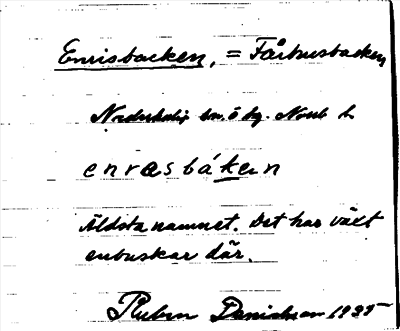 Enrisbacken, = Fårhusbacken
Nederkalix sn. ö hg. Norrb l.
enræsbákæn
Äldsta namnet. Det har växt
enbuskar där.
Ruben Danielsson 1935